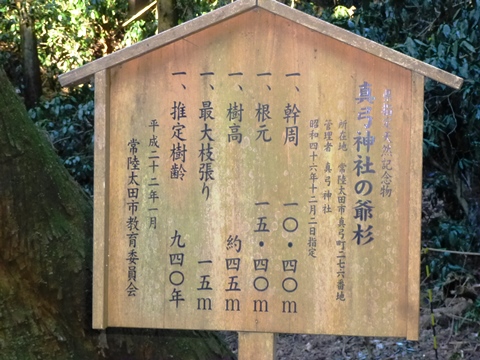 天然記念物
真弓神社の爺杉
所在地 常陸太田市真弓町二七六番地
管理者 真弓神社
昭和四十六年十二月二日指定
一、幹周 一〇・四〇m
一、根元 一五・四〇m
一、樹高 約四五m
一、最大枝張り 一五m
一、推定樹齢 九四〇年
平成二十二年一月
常陸太田市教育委員会